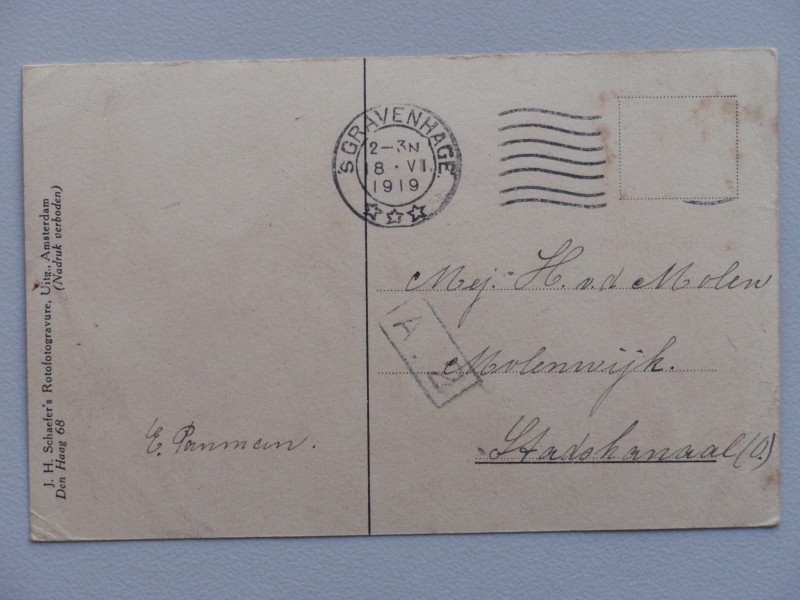 J. H. Schaefer's Rotofotogravure, Uitg., Amsterdam
Den Haag 68 (Nadruk verboden)
'SGRAVENHAGE.
2-3N
18 · VII.
1919
Mej. H. v.d Molen
Molenwijk.
Stadskanaal (O.)
E.
A